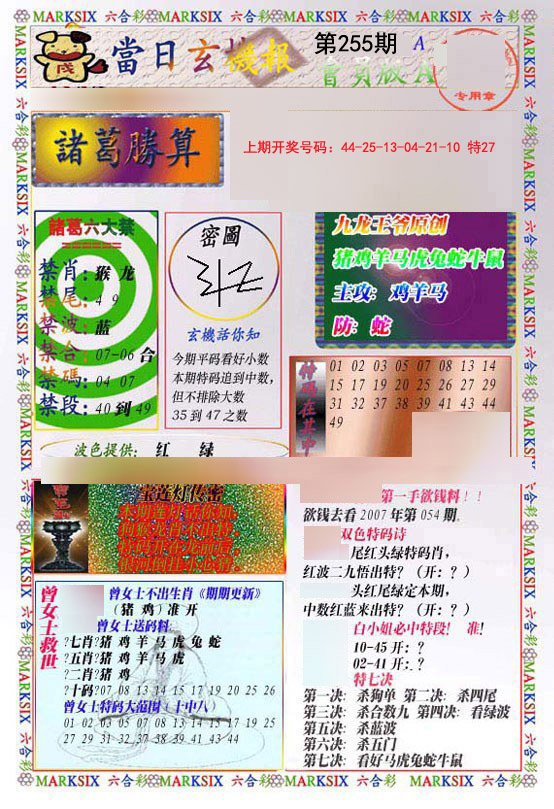 MARKSIX 六合彩 MARKSIX 六合彩 MARKSIX 六合彩 MARKSIX 六合彩
當日玄機報
第255期
A
會員版A
专用章
諸葛勝算
上期开奖号码：44-25-13-04-21-10 特27
諸葛六大禁
禁肖：猴 龙
禁尾：4 9
禁波：蓝
禁合：07-06 合
禁碼：04 07
禁段：40 到 49
密圖
玄機話你知
今期平码看好小数
本期特码追到中数，
但不排除大数
35 到 47 之数
九龙王爷原创
猪鸡羊马虎兔蛇牛鼠
主攻：鸡羊马
防：蛇
01 02 03 05 07 08 13 14
15 17 19 20 25 26 27 29
31 32 37 38 39 41 43 44
49
波色提供： 红 绿
宝莲灯传密
第一手欲钱料！！
欲钱去看 2007 年第 054 期.
双色特码诗
尾红头绿特码肖，
红波二九悟出特？（开：？）
头红尾绿定本期，
中数红蓝来出特？（开：？）
白小姐必中特段！ 准！
10-45 开：？
02-41 开：？
特七决
第一决：杀狗单 第二决：杀四尾
第三决：杀合数九 第四决：看绿波
第五决：杀蓝波
第六决：杀五门
第七决：看好马虎兔蛇牛鼠
曾女士救世
曾女士不出生肖《期期更新》
（猪 鸡）准 开
曾女士送码料
?七肖?猪 鸡 羊 马 虎 兔 蛇
?五肖?猪 鸡 羊 马 虎
?二肖?猪 鸡
?十码?07 08 13 14 15 17 19 20 25 26
曾女士特码大范围（十中八）
01 02 03 05 07 08 13 14 15 17 19 25
27 29 31 32 37 38 39 41 43 44
MARKSIX 六合彩 MARKSIX 六合彩 MARKSIX 六合彩 MARKSIX 六合彩